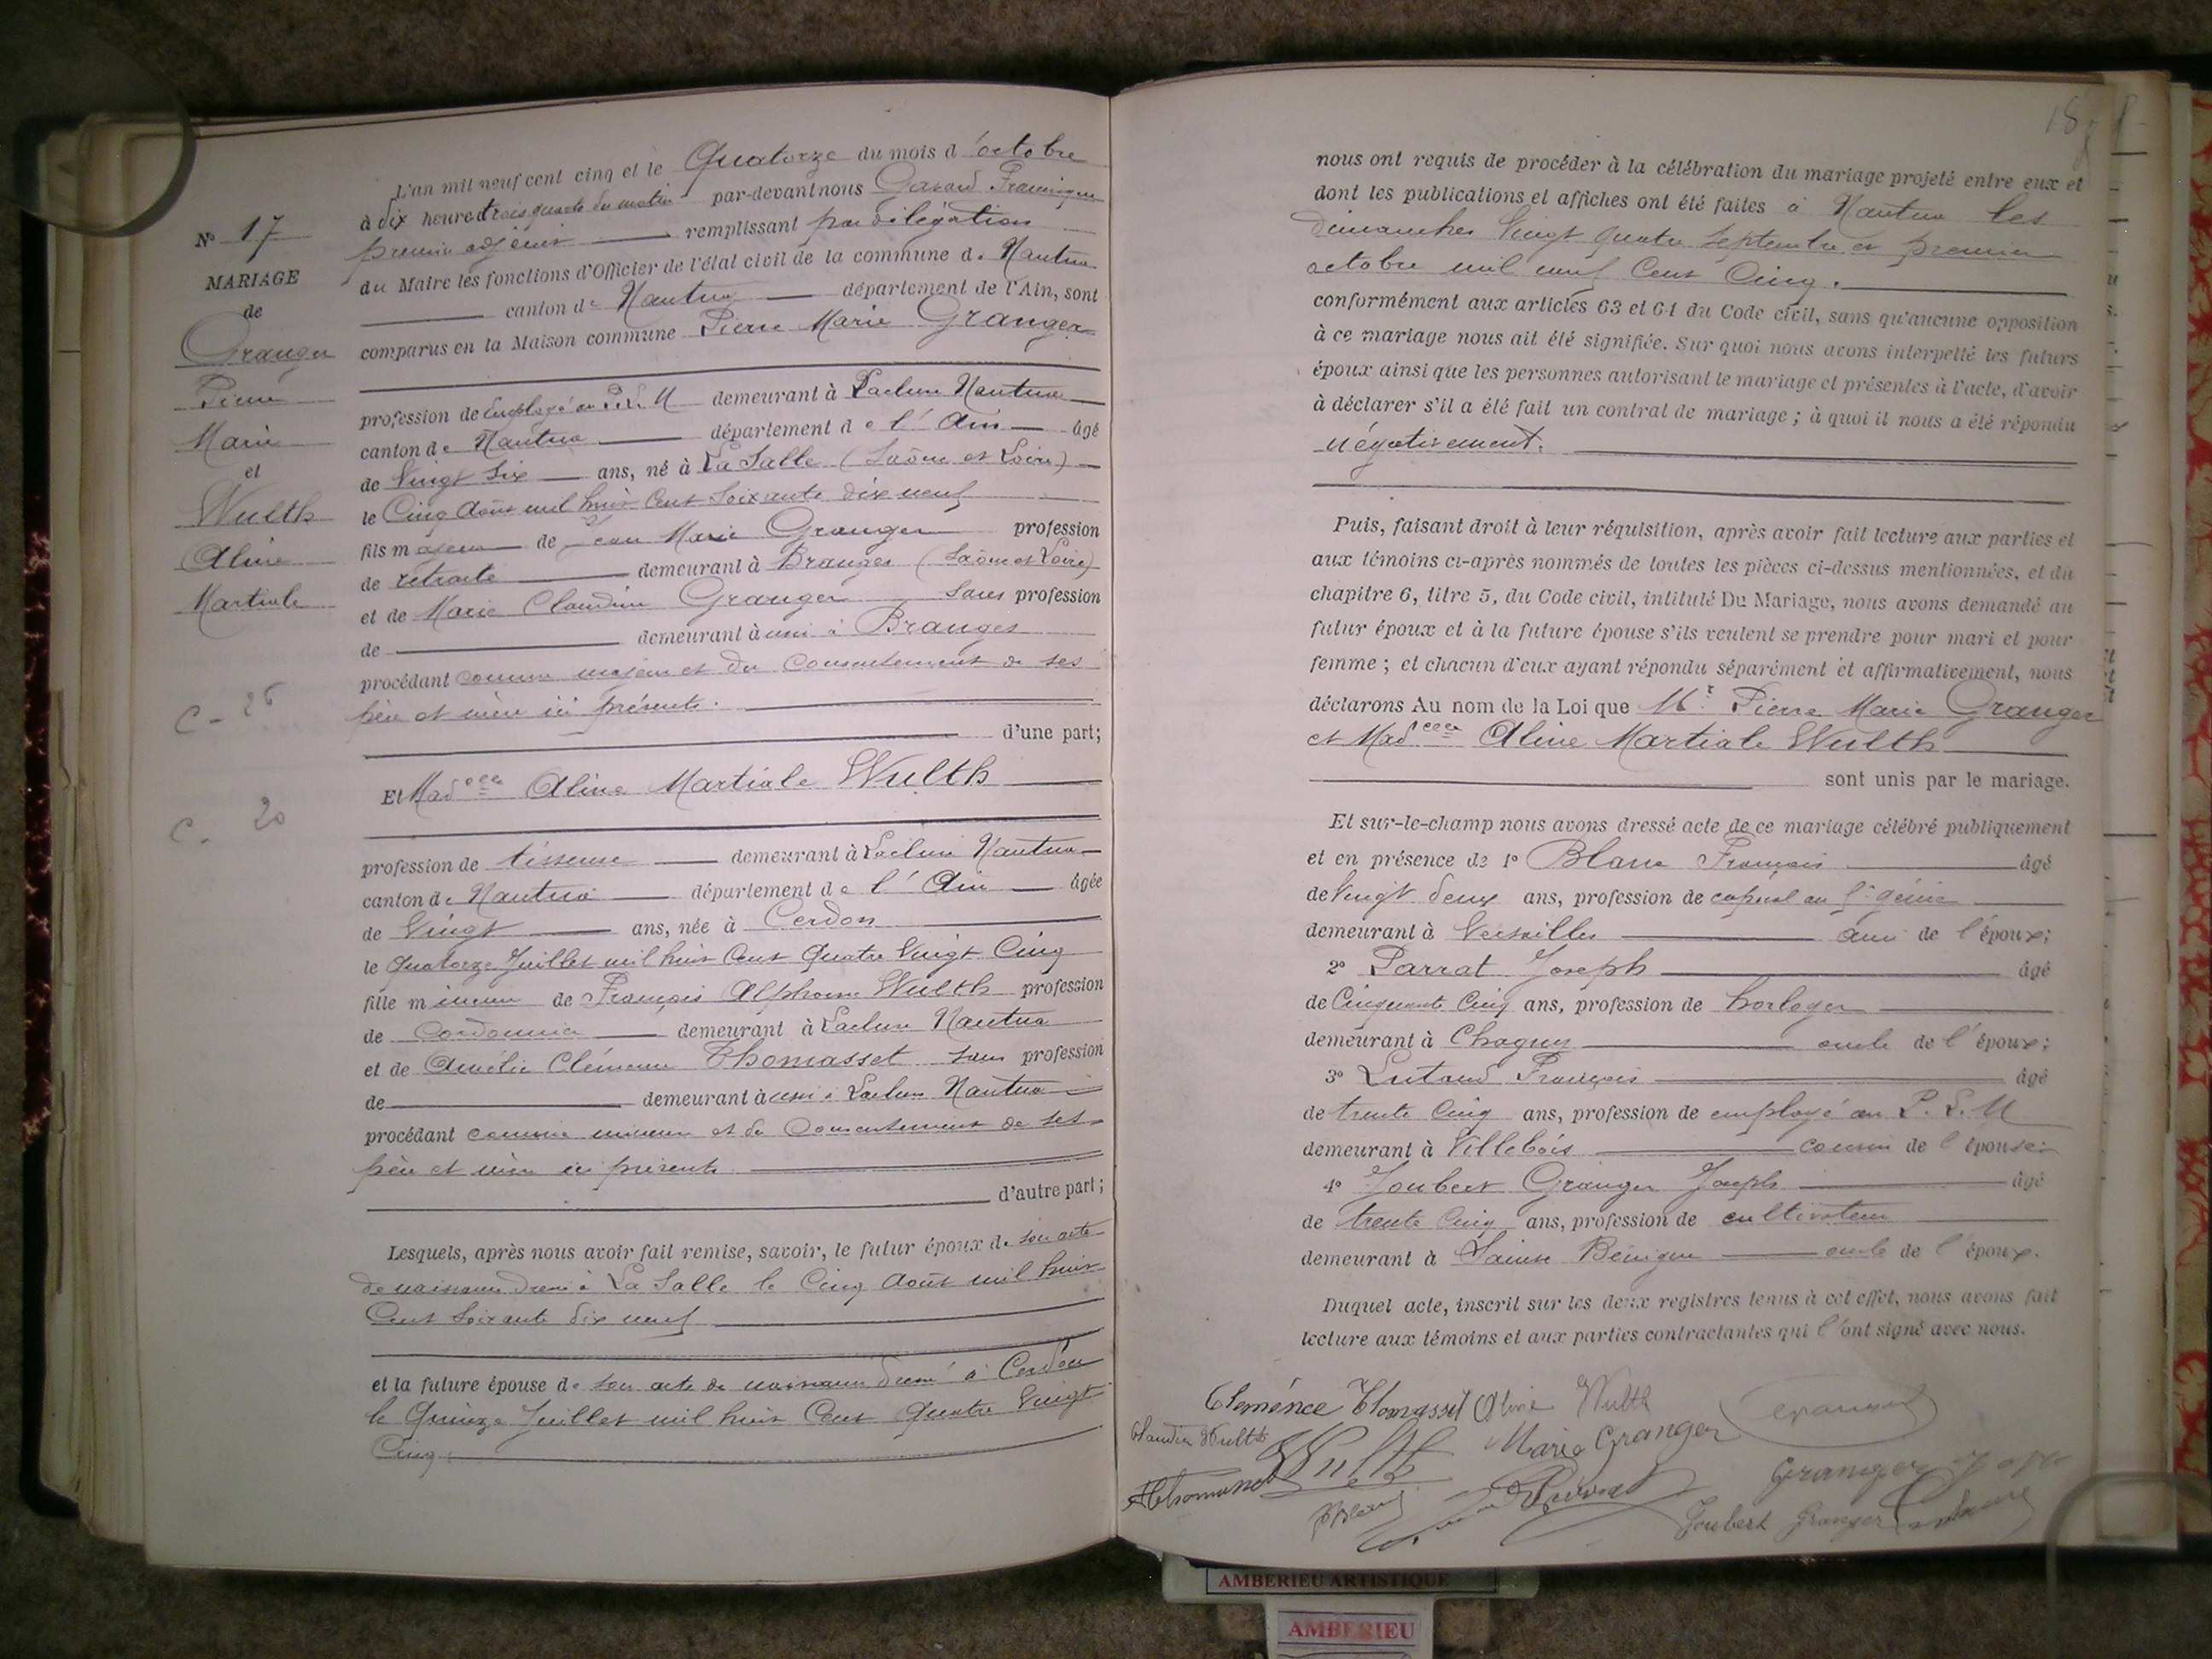 N° 17
MARIAGE
de
Granger
Pierre
Marie
et
Wulth
Aline
Martiale
C - 26
C. 20
L'an mil neuf cent cinq et le Quatorze du mois d'octobre
à dix heures trois quarts du matin par-devant nous François
premier adjoint remplissant par délégation
du Maire les fonctions d'Officier de l'état civil de la commune de Nantua
canton de Nantua département de l'Ain, sont
comparus en la Maison commune Pierre Marie Granger
profession de Employé au P.L.M demeurant à Lacluse Nantua
canton de Nantua département de l'Ain âgé
de Vingt six ans, né à La Salle (Saône et Loire)
le Cinq Août mil huit Cent Soixante dix neuf
fils majeur de Jean Marie Granger profession
de retraité demeurant à Branges (Saône et Loire)
et de Marie Claudine Granger sans profession
de demeurant aussi à Branges
procédant comme majeur et du consentement de ses
père et mère ici présents.
d'une part;
Et Mad^elle Aline Martiale Wulth
profession de tisseuse demeurant à Lacluse Nantua
canton de Nantua département de l'Ain âgée
de Vingt ans, née à Cerdon
le Quatorze Juillet mil huit Cent Quatre Vingt Cinq
fille mineure de François Alphonse Wulth profession
de Cordonnier demeurant à Lacluse Nantua
et de Amélie Clémence Thomasset sans profession
de demeurant aussi à Lacluse Nantua
procédant comme mineure et du Consentement de ses
père et mère ici présents
d'autre part;
Lesquels, après nous avoir fait remise, savoir, le futur époux de son acte
de naissance dressé à La Salle le Cinq Août mil huit
Cent Soixante dix neuf
et la future épouse de son acte de naissance dressé à Cerdon
le Quinze Juillet mil huit Cent Quatre Vingt
Cinq.
18
nous ont requis de procéder à la célébration du mariage projeté entre eux et
dont les publications et affiches ont été faites à Nantua les
dimanches Vingt quatre Septembre et premier
octobre mil neuf Cent Cinq.
conformément aux articles 63 et 64 du Code civil, sans qu'aucune opposition
à ce mariage nous ait été signifiée. Sur quoi nous avons interpellé les futurs
époux ainsi que les personnes autorisant le mariage et présentes à l'acte, d'avoir
à déclarer s'il a été fait un contrat de mariage ; à quoi il nous a été répondu
négativement.
Puis, faisant droit à leur réquisition, après avoir fait lecture aux parties et
aux témoins ci-après nommés de toutes les pièces ci-dessus mentionnées, et du
chapitre 6, titre 5, du Code civil, intitulé Du Mariage, nous avons demandé au
futur époux et à la future épouse s'ils veulent se prendre pour mari et pour
femme ; et chacun d'eux ayant répondu séparément et affirmativement, nous
déclarons Au nom de la Loi que M^r Pierre Marie Granger
et Mad^elle Aline Martiale Wulth
sont unis par le mariage.
Et sur-le-champ nous avons dressé acte de ce mariage célébré publiquement
et en présence de 1° Blanc François âgé
de Vingt deux ans, profession de caporal au génie
demeurant à Versailles ami de l'époux;
2° Parrat Joseph âgé
de Cinquante Cinq ans, profession de horloger
demeurant à Chagny oncle de l'époux;
3° Lutaud François âgé
de trente Cinq ans, profession de employé au P.L.M
demeurant à Villebois cousin de l'épouse;
4° Joubert Granger Joseph âgé
de trente Cinq ans, profession de cultivateur
demeurant à Sainte Bénigne oncle de l'époux.
Duquel acte, inscrit sur les deux registres tenus à cet effet, nous avons fait
lecture aux témoins et aux parties contractantes qui l'ont signé avec nous.
Clemence Thomasset Aline Wulth
Claudia Wulth Wulth Marie Granger
Granger
Joubert Granger
AMBERIEU ARTISTIQUE
AMBERIEU